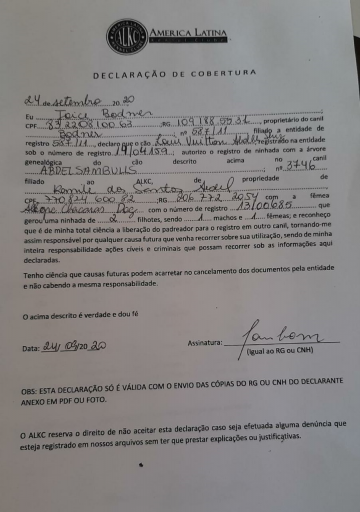 ALKC
AMERICA LATINA
KENNEL CLUB
DECLARAÇÃO DE COBERTURA
24 de setembro 20 20
Eu Joice Bodner
CPF ;RG , proprietário do canil
Bodner , nº 587/11 filiado a entidade de
registro 587/11, declaro que o cão Louis Vuitton registrado na entidade
sob o número de registro 19/04159; autorizo o registro de ninhada com a árvore
genealógica do cão descrito acima no canil
ABDELSAMBULLS nº 3746
filiado ao ALKC, de propriedade de
Romile dos Santos Abdel
CPF ;RG com a fêmea
com o número de registro 13/00685 que
gerou uma ninhada de 2 filhotes, sendo 1 machos e 1 fêmeas; e reconheço
que é de minha total ciência a liberação do padreador para o registro em outro canil, tornando-me
assim responsável por qualquer causa futura que venha recorrer sobre sua utilização, sendo de minha
inteira responsabilidade ações cíveis e criminais que possam recorrer sob as informações aqui
declaradas.
Tenho ciência que causas futuras podem acarretar no cancelamento dos documentos pela entidade
e não cabendo a mesma responsabilidade.
O acima descrito é verdade e dou fé
Data: 24/09/20 20 Assinatura:
(igual ao RG ou CNH)
OBS: ESTA DECLARAÇÃO SÓ É VÁLIDA COM O ENVIO DAS CÓPIAS DO RG OU CNH DO DECLARANTE
ANEXO EM PDF OU FOTO.
O ALKC reserva o direito de não aceitar esta declaração caso seja efetuada alguma denúncia que
esteja registrado em nossos arquivos sem ter que prestar explicações ou justificativas.